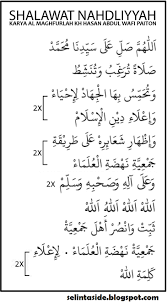 SHALAWAT NAHDLIYYAH
KARYA AL MAGHFURLAH KH HASAN ABDUL WAFI PAITON
اَللّٰهُمَّ صَلِّ عَلَى سَيِّدِنَا مُحَمَّدْ
صَلَاةً تُرَغِّبُ وَتُنَشِّطُ
2X وَتُحَمِّسُ بِهَا الْجِهَادْ لِإِحْيَاءْ
وَإِعْلَاءِ دِيْنِ الْإِسْلَامْ
وَإِظْهَارِ شَعَائِرِهْ عَلَى طَرِيْقَةْ
2X جَمْعِيَّةْ نَهْضَةِ الْعُلَمَاءْ
2X وَعَلَى آلِهِ وَصَحْبِهِ وَسَلِّمْ
اَللهُ اَللهُ اَللهُ اَللهُ
ثَبِّتْ وَانْصُرْ أَهْلَ جَمْعِيَّةْ
2X جَمْعِيَّةْ نَهْضَةِ الْعُلَمَاءْ . لِإِعْلَاءِ
كَلِمَةِ اللهْ
selintaside.blogspot.com